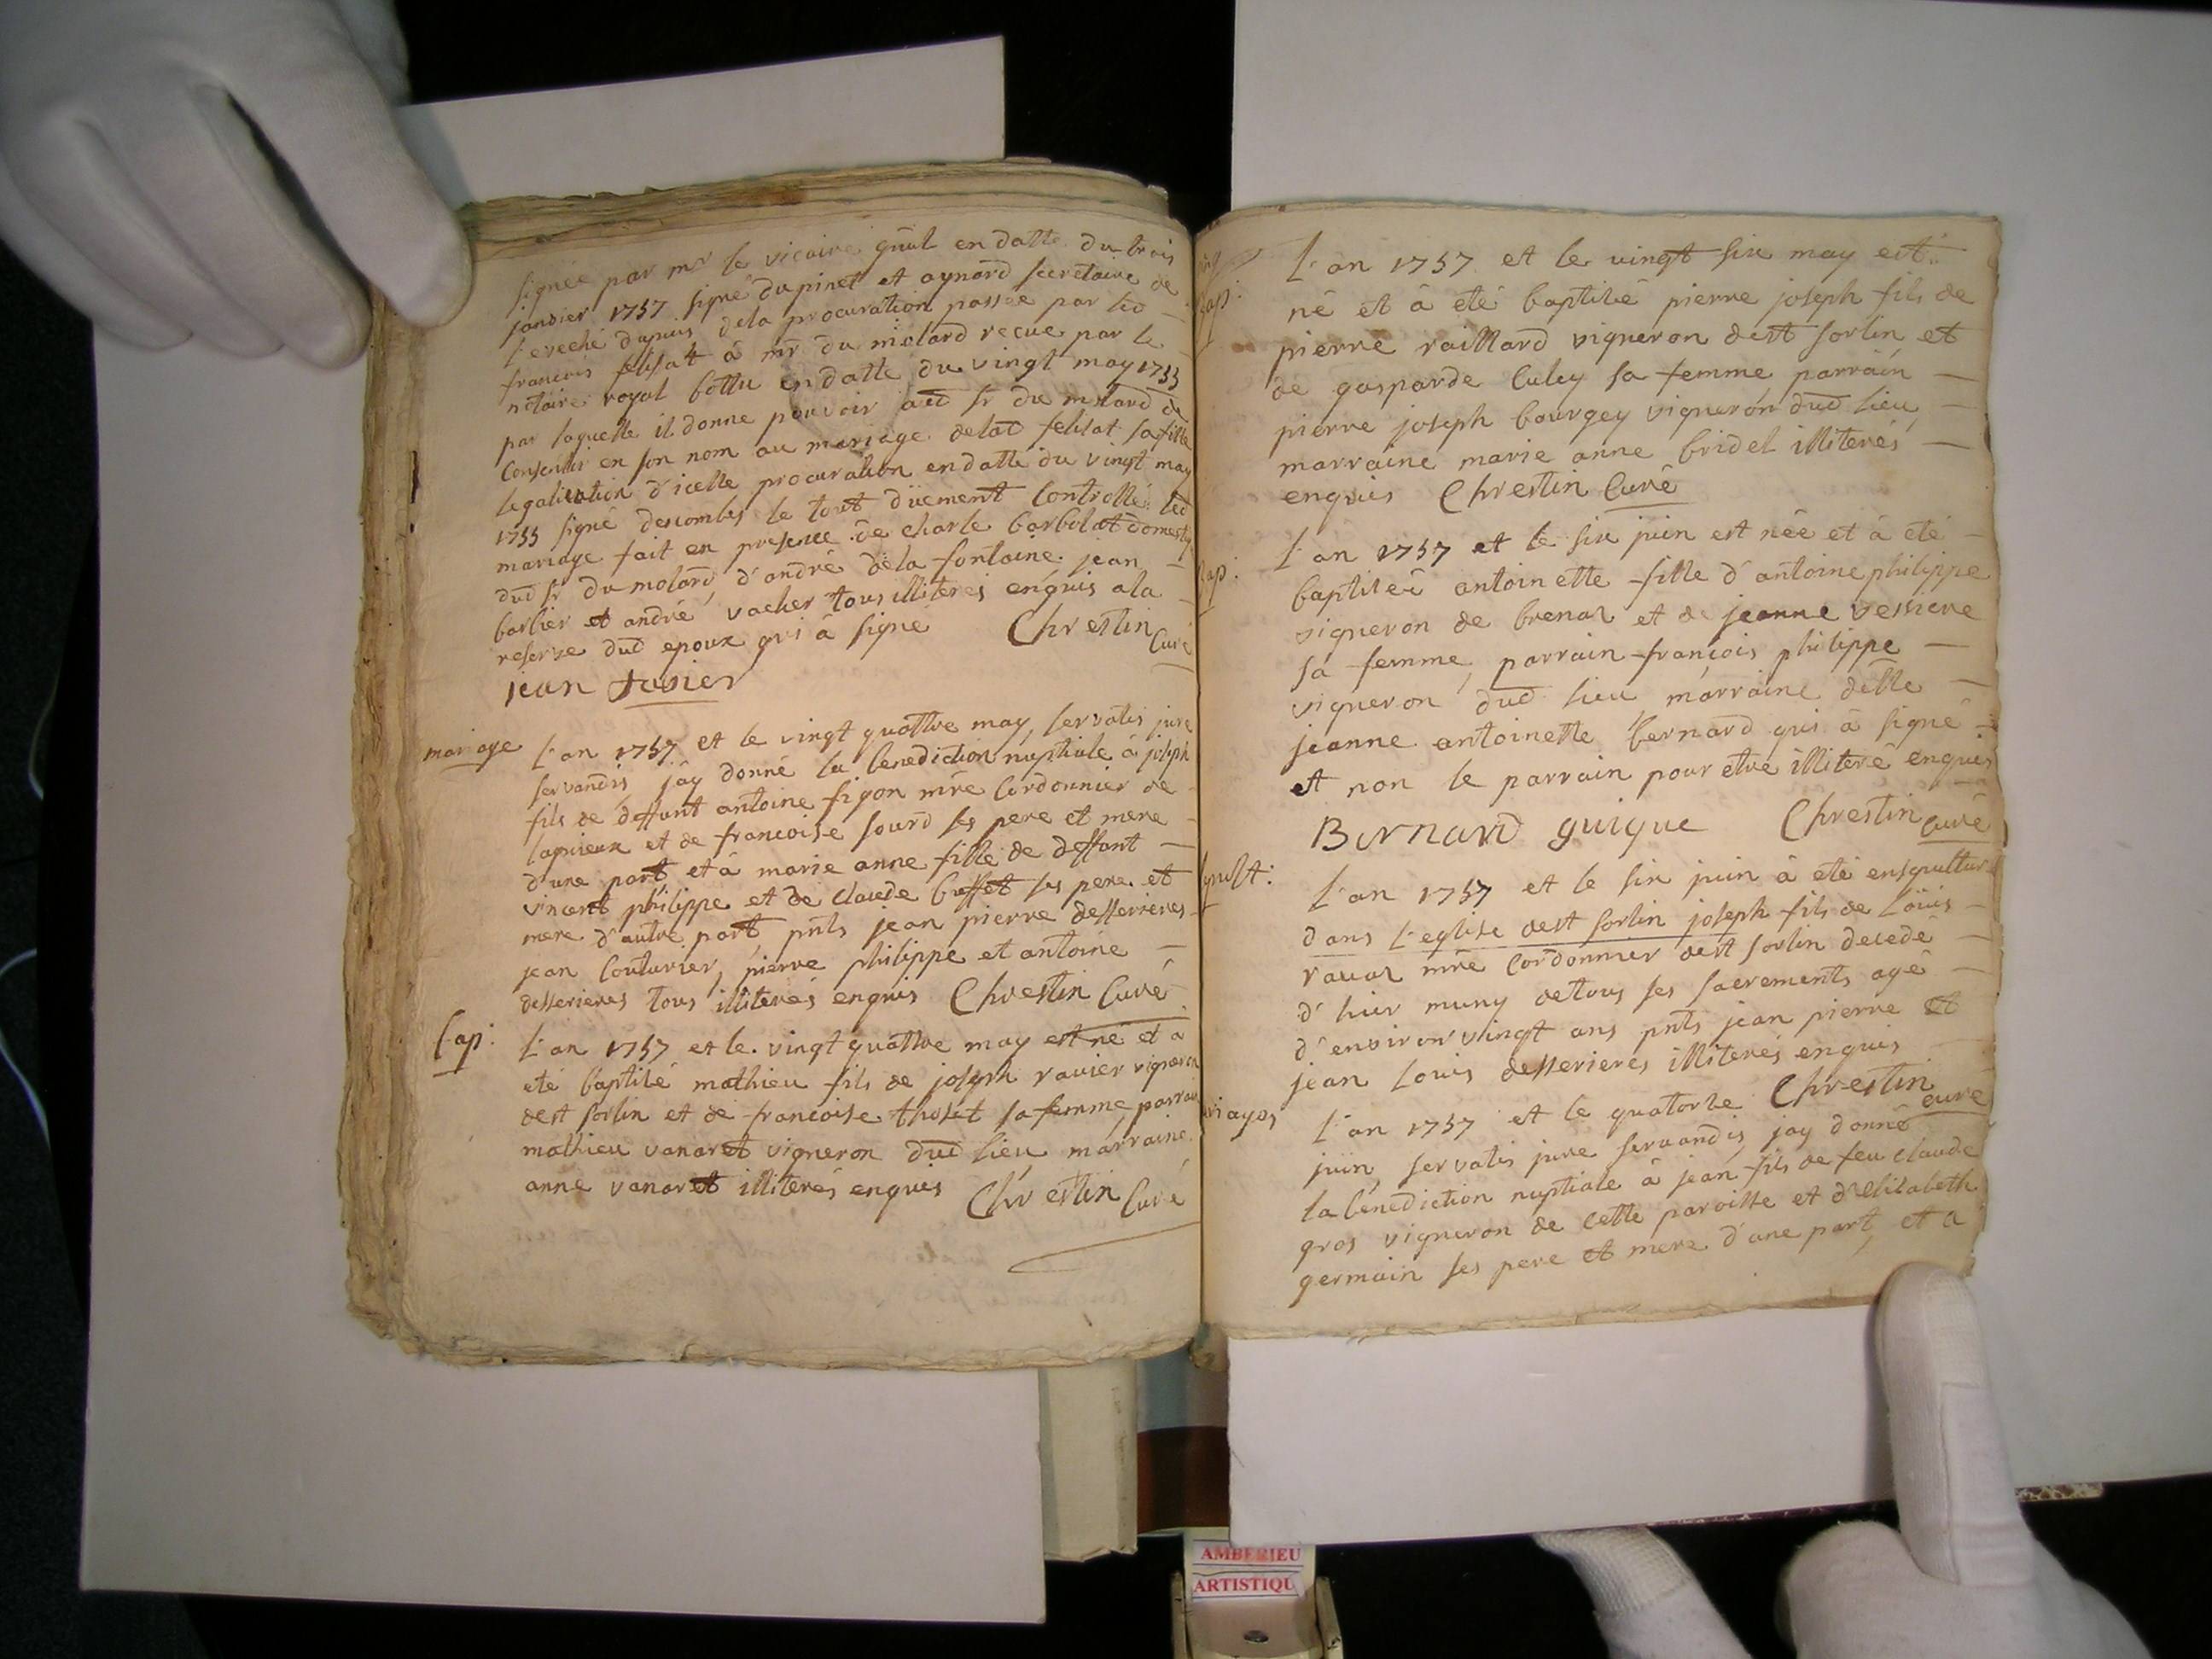 signée par mr le vicaire gñal en datte du trois
janvier 1757 signé dupinet et aynard secretaire de
l'eveché dupuis dela procuration passée par led
francois felisat â mr du molard reçue par le
notaire royal bottu en datte du vingt may 1755
par laquelle il donne pouvoir aud sr du molard de
consentir en son nom au mariage delad felisat sa fille
legalisation d'icelle procuration en datte du vingt may
1755 signé descombes le tout düement controllé led
mariage fait en presence de charle barbolat domestiq
dud sr du molard, d'andré dela fontaine jean
barbier et andré vacher tous illiterés enquis ala
reserve dud epoux qui â signé Chrestin Curé
jean
mariage
l'an 1757 et le vingt quattre may, servatis jure
servandis, j'ay donné la benediction nuptiale â joseph
fils de deffunt antoine figon mre Cordonnier de
lagnieux et de francoise sourd ses pere et mere
d'une part et â marie anne fille de deffunt
vincent philippe et de claude buffet ses pere et
mere d'autre part, pnts jean pierre desserieres
jean Couturier, pierre philippe et antoine
desserieres tous illiterés enquis Chrestin Curé
bap:
l'an 1757 et le vingt quattre may est né et a
eté baptisé mathieu fils de joseph ravier vigneron
dest sorlin et de francoise thoset sa femme, parrain
mathieu vanaret vigneron dud lieu, marraine
anne vanaret illiterés enquis Chrestin Curé
bap:
l'an 1757 et le vingt six may est
né et â eté baptisé pierre joseph fils de
pierre raillard vigneron dest sorlin et
de gasparde Culey sa femme, parrain
pierre joseph bourgey vigneron dud lieu,
marraine marie anne bridel illiterés
enquis Chrestin Curé
bap:
l'an 1757 et le six juin est née et â eté
baptiseé antoinette fille d'antoine philippe
vigneron de brenaz et de jeanne vessiere
sa femme, parrain francois philippe
vigneron dud lieu, marraine delle
jeanne antoinette bernard qui â signé
et non le parrain pour etre illiteré enquis
Bernard guigue Chrestin curé
sepult:
l'an 1757 et le six juin â eté ensepulturé
dans l'eglise dest sorlin joseph fils de loüis
ravaz mre Cordonnier dest sorlin decedé
d'hier muny detous ses sacrements, agé
d'environ vingt ans pnts jean pierre et
jean louis desserieres illiterés enquis
Chrestin curé
mriages
l'an 1757 et le quatorze
juin, servatis jure servandis, jay donné
la benediction nuptiale â jean fils de feu claude
gros vigneron de cette paroisse et d'elisabeth
germain ses pere et mere d'une part, et a
AMBERIEU
ARTISTIQU